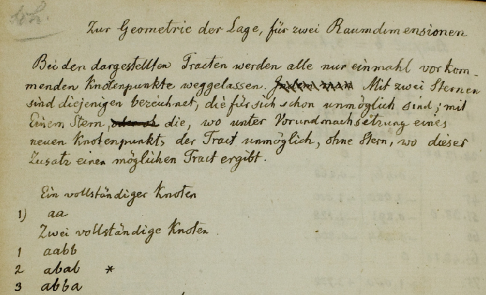 Zur Geometrie der Lage, für zwei Raumdimensionen
Bei den dargestellten Tracten werden alle nur einmahl vorkom-
menden Knotenpunkte weggelassen. Mit zwei Sternen
sind diejenigen bezeichnet, die für sich schon unmöglich sind; mit
Einem Stern, die, wo unter Vorundnachsetzung eines
neuen Knotenpunkts der Tract unmöglich, ohne Stern, wo dieser
Zusatz einen möglichen Tract ergibt.
Ein vollständiger Knoten
1) aa
Zwei vollständige Knoten.
1 aabb
2 abab *
3 abba